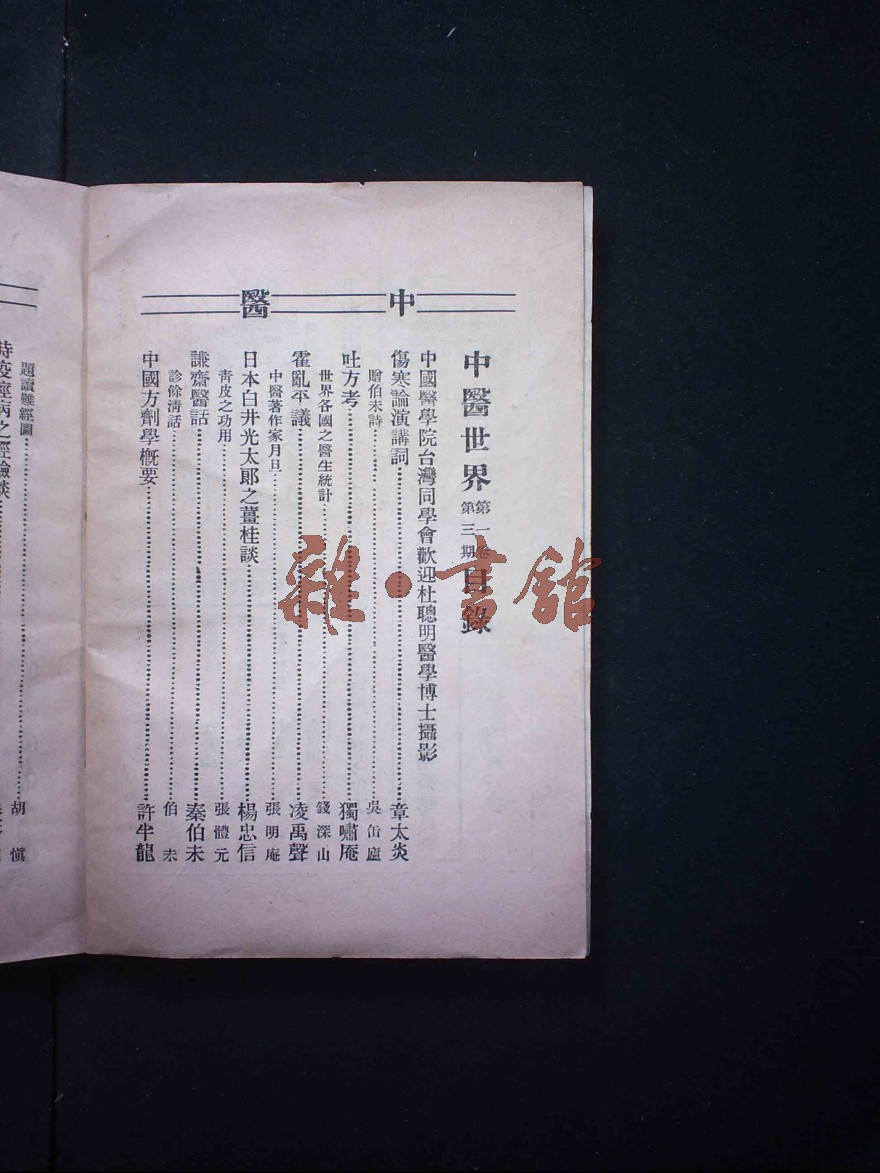 中醫
中醫世界第一卷第三期目錄
中國醫學院台灣同學會歡迎杜聰明醫學博士攝影
傷寒論演講詞 章太炎
贈伯未詩 吳缶廬
吐方考 獨嘯庵
世界各國之醫生統計 錢深山
霍亂平議 凌禹聲
中醫著作家月旦 張明庵
日本白井光太郎之薑桂談 楊忠信
青皮之功用 張體元
謙齋醫話 秦伯未
診餘清話 伯未
中國方劑學概要 許半龍
題讀難經圖 胡愼
時疫痙病之經驗談
雜·書館